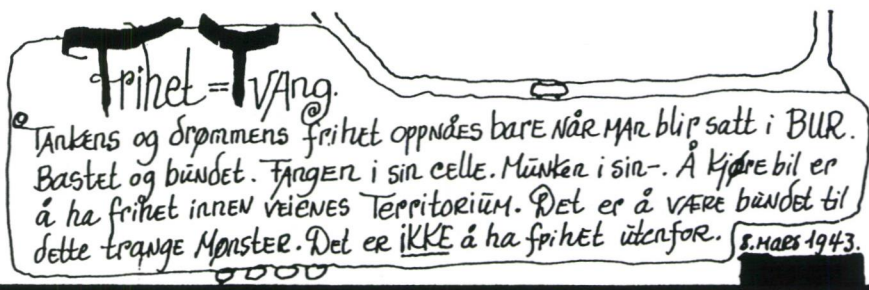 Frihet = Tvang.
Tankens og drømmens frihet oppnåes bare når man blir satt i BUR.
Bastet og bundet. Fangen i sin celle. Munken i sin-. Å kjøre bil er
å ha frihet innen veienes Territorium. Det er å være bundet til
dette trange Mønster. Det er IKKE å ha frihet utenfor.
8. Mars 1943.